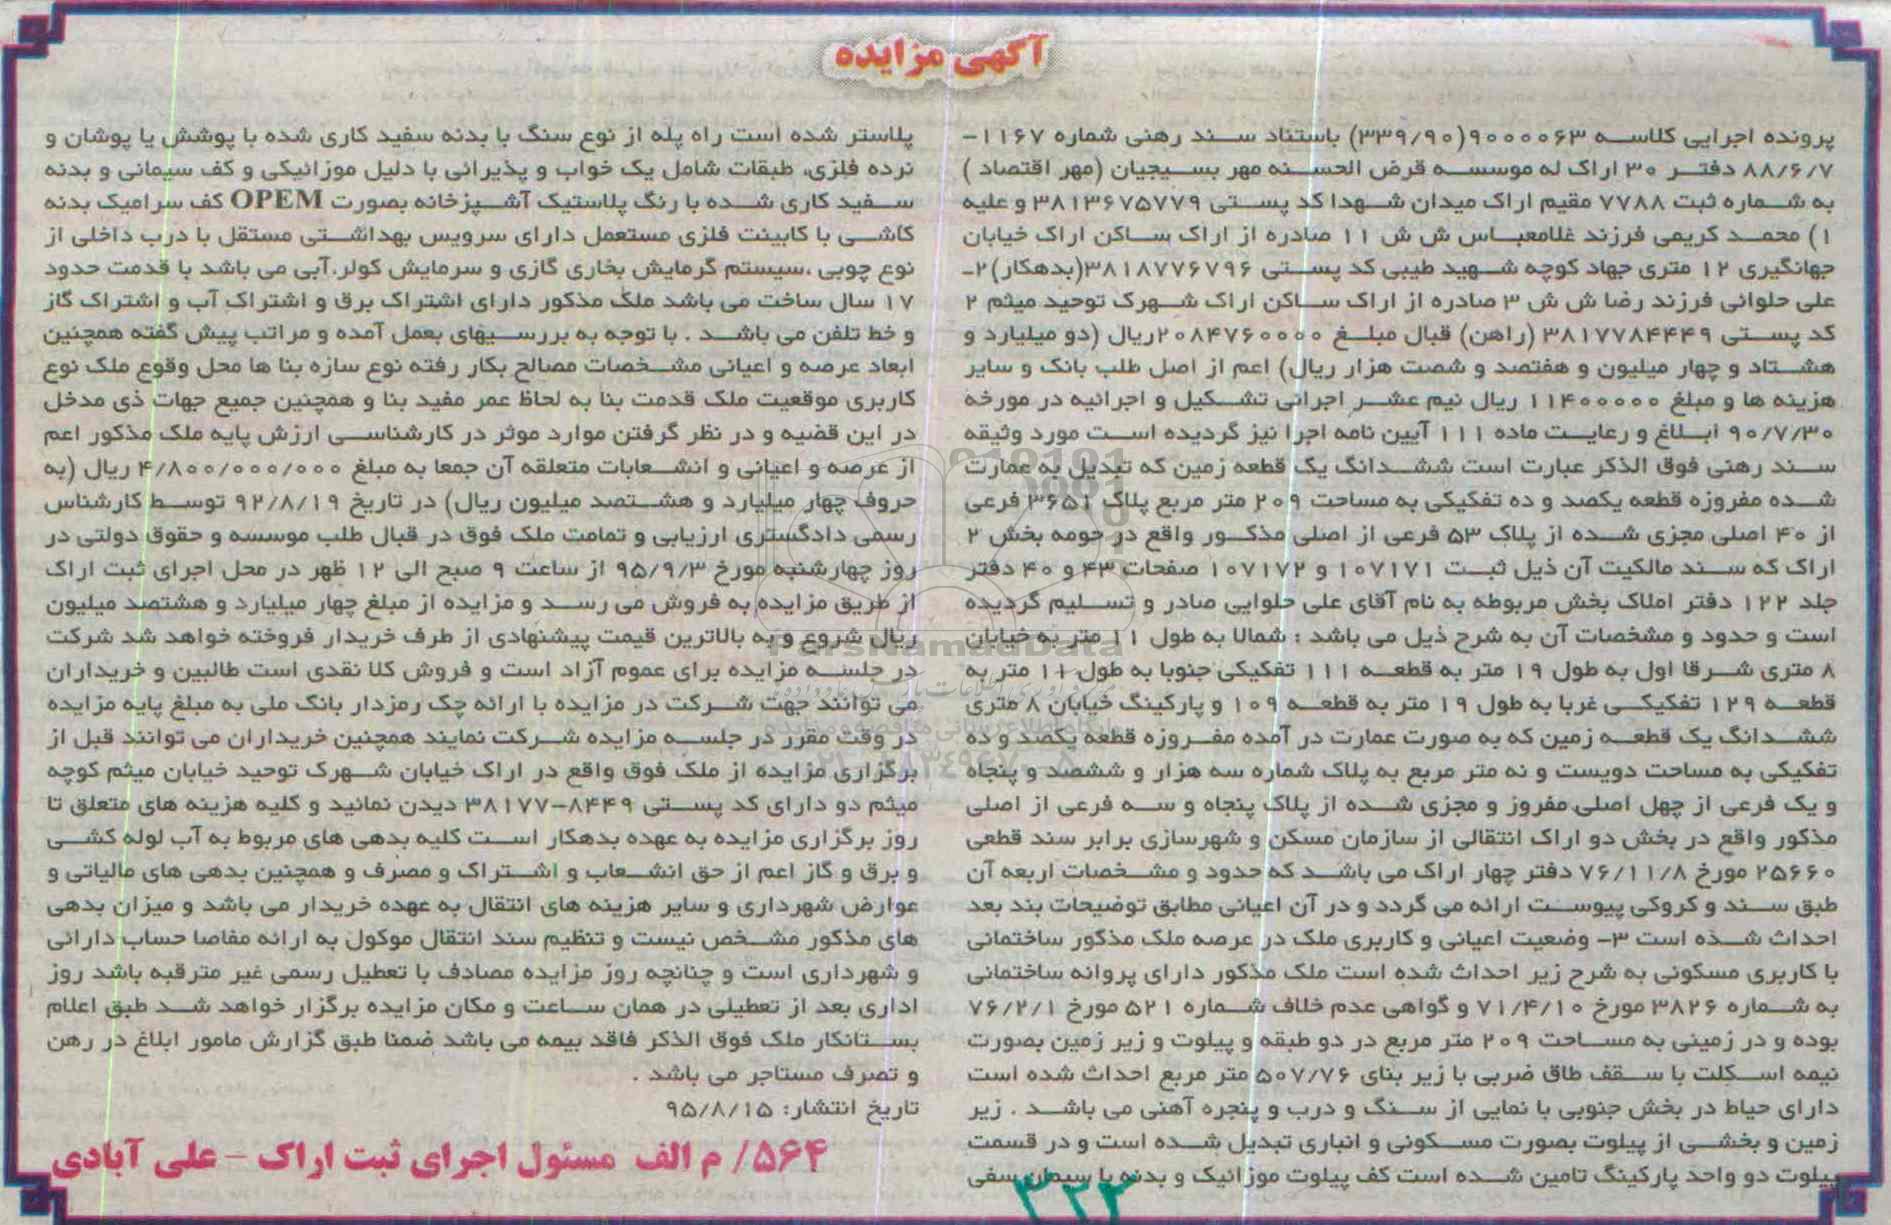 آگهی مزایده
پرونده اجرایی کلاسه ۹۰۰۰۰۶۳(۳۳۹/۹۰) باستناد سند رهنی شماره ۱۱۶۷-
۸۸/۶/۷ دفتر ۳۰ اراک له موسسه قرض الحسنه مهر بسیجیان (مهر اقتصاد )
به شماره ثبت ۷۷۸۸ مقیم اراک میدان شهدا کد پستی ۳۸۱۳۶۷۵۷۷۹ و علیه
۱) محمد کریمی فرزند غلامعباس ش ش ۱۱ صادره از اراک ساکن اراک خیابان
جهانگیری ۱۲ متری جهاد کوچه شهید طیبی کد پستی ۳۸۱۸۷۷۶۷۹۶(بدهکار)۲-
علی حلوائی فرزند رضا ش ش ۳ صادره از اراک ساکن اراک شهرک توحید میثم ۲
کد پستی ۳۸۱۷۷۸۴۴۴۹ (راهن) قبال مبلغ ۲۰۸۴۷۶۰۰۰۰ریال (دو میلیارد و
هشتاد و چهار میلیون و هفتصد و شصت هزار ریال) اعم از اصل طلب بانک و سایر
هزینه ها و مبلغ ۱۱۴۰۰۰۰۰ ریال نیم عشر اجرائی تشکیل و اجرائیه در مورخه
۹۰/۷/۳۰ ابلاغ و رعایت ماده ۱۱۱ آیین نامه اجرا نیز گردیده است مورد وثیقه
سند رهنی فوق الذکر عبارت است ششدانگ یک قطعه زمین که تبدیل به عمارت
شده مفروزه قطعه یکصد و ده تفکیکی به مساحت ۲۰۹ متر مربع پلاک ۳۶۵۱ فرعی
از ۴۰ اصلی مجزی شده از پلاک ۵۳ فرعی از اصلی مذکور واقع در حومه بخش ۲
اراک که سند مالکیت آن ذیل ثبت ۱۰۷۱۷۱ و ۱۰۷۱۷۲ صفحات ۴۳ و ۴۰ دفتر
جلد ۱۲۲ دفتر املاک بخش مربوطه به نام آقای علی حلوایی صادر و تسلیم گردیده
است و حدود و مشخصات آن به شرح ذیل می باشد : شمالا به طول ۱۱ متر به خیابان
۸ متری شرقا اول به طول ۱۹ متر به قطعه ۱۱۱ تفکیکی جنوبا به طول ۱۱ متر به
قطعه ۱۲۹ تفکیکی غربا به طول ۱۹ متر به قطعه ۱۰۹ و پارکینگ خیابان ۸ متری
ششدانگ یک قطعه زمین که به صورت عمارت در آمده مفروزه قطعه یکصد و ده
تفکیکی به مساحت دویست و نه متر مربع به پلاک شماره سه هزار و ششصد و پنجاه
و یک فرعی از چهل اصلی مفروز و مجزی شده از پلاک پنجاه و سه فرعی از اصلی
مذکور واقع در بخش دو اراک انتقالی از سازمان مسکن و شهرسازی برابر سند قطعی
۲۵۶۶۰ مورخ ۷۶/۱۱/۸ دفتر چهار اراک می باشد که حدود و مشخصات اربعه آن
طبق سند و کروکی پیوست ارائه می گردد و در آن اعیانی مطابق توضیحات بند بعد
احداث شده است ۳- وضعیت اعیانی و کاربری ملک در عرصه ملک مذکور ساختمانی
با کاربری مسکونی به شرح زیر احداث شده است ملک مذکور دارای پروانه ساختمانی
به شماره ۳۸۲۶ مورخ ۷۱/۴/۱۰ و گواهی عدم خلاف شماره ۵۲۱ مورخ ۷۶/۲/۱
بوده و در زمینی به مساحت ۲۰۹ متر مربع در دو طبقه و پیلوت و زیر زمین بصورت
نیمه اسکلت با سقف طاق ضربی با زیر بنای ۵۰۷/۷۶ متر مربع احداث شده است
دارای حیاط در بخش جنوبی با نمایی از سنگ و درب و پنجره آهنی می باشد . زیر
زمین و بخشی از پیلوت بصورت مسکونی و انباری تبدیل شده است و در قسمت
پیلوت دو واحد پارکینگ تامین شده است کف پیلوت موزائیک و بدنه با سیمان سفی
پلاستر شده است راه پله از نوع سنگ با بدنه سفید کاری شده با پوشش یا پوشان و
نرده فلزی، طبقات شامل یک خواب و پذیرائی با دلیل موزائیکی و کف سیمانی و بدنه
سفید کاری شده با رنگ پلاستیک آشپزخانه بصورت OPEM کف سرامیک بدنه
کاشی با کابینت فلزی مستعمل دارای سرویس بهداشتی مستقل با درب داخلی از
نوع چوبی ،سیستم گرمایش بخاری گازی و سرمایش کولر.آبی می باشد با قدمت حدود
۱۷ سال ساخت می باشد ملک مذکور دارای اشتراک برق و اشتراک آب و اشتراک گاز
و خط تلفن می باشد . با توجه به بررسیهای بعمل آمده و مراتب پیش گفته همچنین
ابعاد عرصه و اعیانی مشخصات مصالح بکار رفته نوع سازه بنا ها محل وقوع ملک نوع
کاربری موقعیت ملک قدمت بنا به لحاظ عمر مفید بنا و همچنین جمیع جهات ذی مدخل
در این قضیه و در نظر گرفتن موارد موثر در کارشناسی ارزش پایه ملک مذکور اعم
از عرصه و اعیانی و انشعابات متعلقه آن جمعا به مبلغ ۴/۸۰۰/۰۰۰/۰۰۰ ریال (به
حروف چهار میلیارد و هشتصد میلیون ریال) در تاریخ ۹۲/۸/۱۹ توسط کارشناس
رسمی دادگستری ارزیابی و تمامت ملک فوق در قبال طلب موسسه و حقوق دولتی در
روز چهارشنبه مورخ ۹۵/۹/۳ از ساعت ۹ صبح الی ۱۲ ظهر در محل اجرای ثبت اراک
از طریق مزایده به فروش می رسد و مزایده از مبلغ چهار میلیارد و هشتصد میلیون
ریال شروع و به بالاترین قیمت پیشنهادی از طرف خریدار فروخته خواهد شد شرکت
در جلسه مزایده برای عموم آزاد است و فروش کلا نقدی است طالبین و خریداران
می توانند جهت شرکت در مزایده با ارائه چک رمزدار بانک ملی به مبلغ پایه مزایده
در وقت مقرر در جلسه مزایده شرکت نمایند همچنین خریداران می توانند قبل از
برگزاری مزایده از ملک فوق واقع در اراک خیابان شهرک توحید خیابان میثم کوچه
میثم دو دارای کد پستی ۸۴۴۹-۳۸۱۷۷ دیدن نمائید و کلیه هزینه های متعلق تا
روز برگزاری مزایده به عهده بدهکار است کلیه بدهی های مربوط به آب لوله کشی
و برق و گاز اعم از حق انشعاب و اشتراک و مصرف و همچنین بدهی های مالیاتی و
عوارض شهرداری و سایر هزینه های انتقال به عهده خریدار می باشد و میزان بدهی
های مذکور مشخص نیست و تنظیم سند انتقال موکول به ارائه مفاصا حساب دارائی
و شهرداری است و چنانچه روز مزایده مصادف با تعطیل رسمی غیر مترقبه باشد روز
اداری بعد از تعطیلی در همان ساعت و مکان مزایده برگزار خواهد شد طبق اعلام
بستانکار ملک فوق الذکر فاقد بیمه می باشد ضمنا طبق گزارش مامور ابلاغ در رهن
و تصرف مستاجر می باشد .
تاریخ انتشار: ۹۵/۸/۱۵
۵۶۴/ م الف مسئول اجرای ثبت اراک – علی آبادی
۳۲۴
ParsNamadData